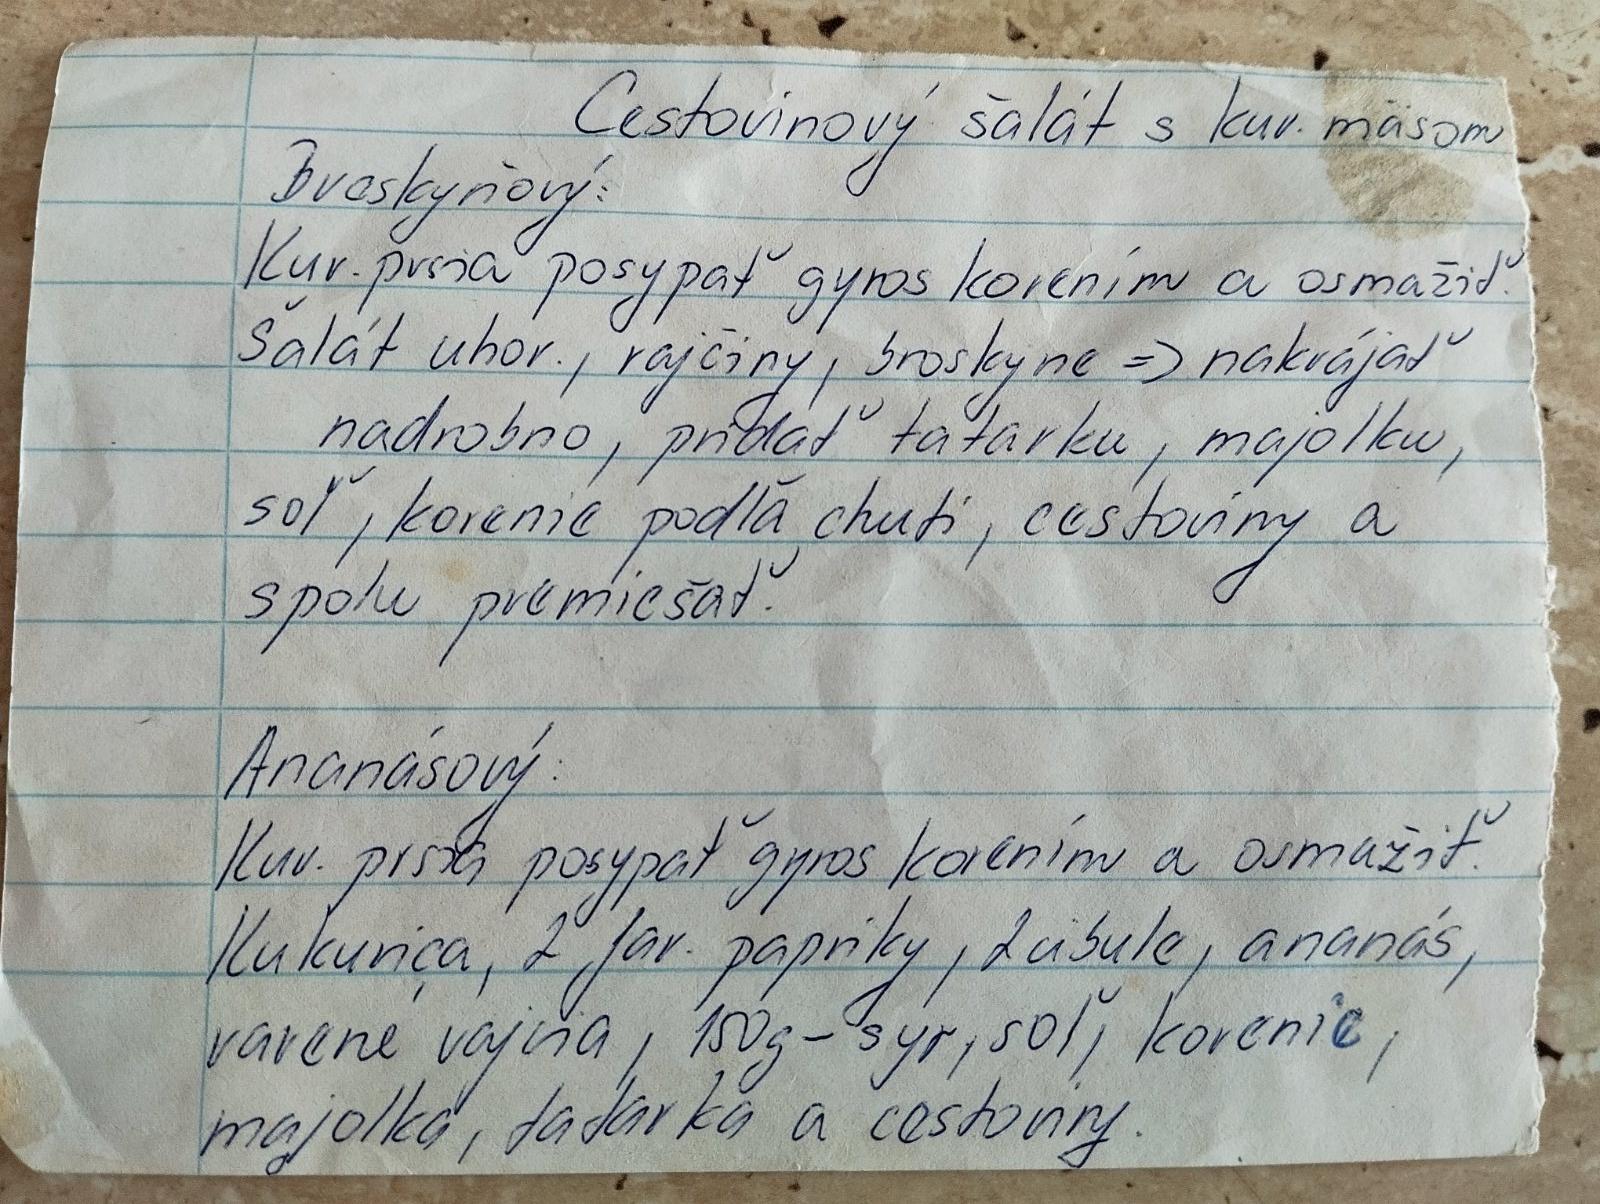 Cestovinový šalát s kur. mäsom
Broskyňový:
Kur. prsia posypať gyros korením a osmažiť.
Šalát uhor., rajčiny, broskyne => nakrájať
nadrobno, pridať tatarku, majolku,
soľ, korenie podľa chuti, cestoviny a
spolu premiešať.
Ananásový:
Kur. prsia posypať gyros korením a osmažiť.
Kukurica, 2 far. papriky, 2 cibule, ananás,
varené vajcia, 150g - syr, soľ, korenie,
majolka, tatarka a cestoviny.